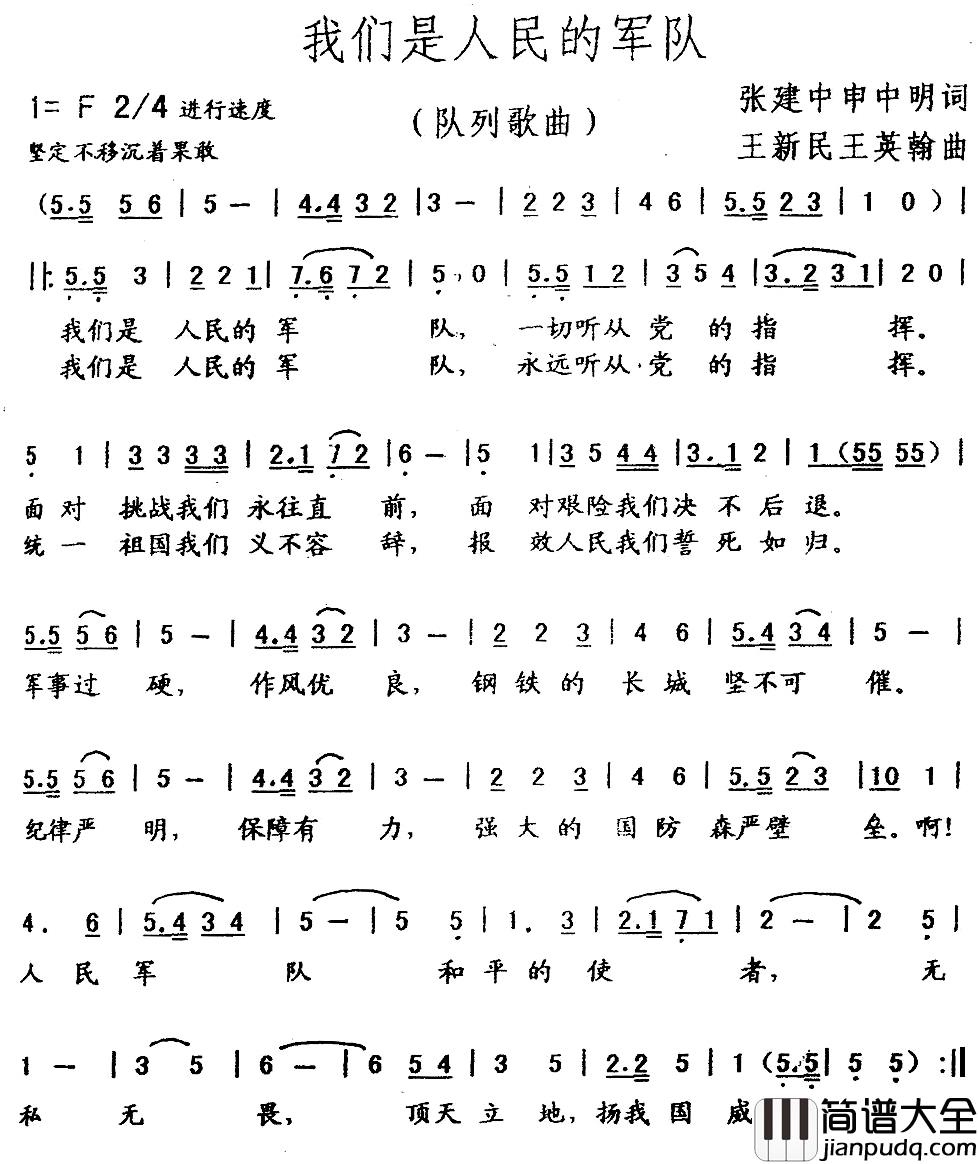 我们是人民的军队
1= F 2/4 进行速度
(队列歌曲)
张建中申中明词
坚定不移沉着果敢
王新民王英翰曲
(5.5 5 6 | 5 — | 4.4 3 2 | 3 — | 2 2 3 | 4 6 | 5.5 2 3 | 1 0 ) |
||: 5.5 3 | 2 2 1 | 7.6 7 2 | 5 0 | 5.5 1 2 | 3 5 4 | 3.2 3 1 | 2 0 |
我们是 人民的 军 队, 一切听从 党 的 指 挥。
我们是 人民的 军 队, 永远听从 党 的 指 挥。
5 1 | 3 3 3 3 | 2.1 7 2 | 6 — | 5 1 | 3 5 4 4 | 3.1 2 | 1 (55 55) |
面 对 挑战我们 永往直 前, 面 对艰险我们决 不 后 退。
统 一 祖国我们 义不容 辞, 报 效人民我们誓 死 如 归。
5.5 5 6 | 5 — | 4.4 3 2 | 3 — | 2 2 3 | 4 6 | 5.4 3 4 | 5 — |
军事过 硬, 作风优 良, 钢 铁 的 长 城 坚不可 催。
5.5 5 6 | 5 — | 4.4 3 2 | 3 — | 2 2 3 | 4 6 | 5.5 2 3 | 10 1 |
纪律严 明, 保障有 力, 强 大 的 国 防 森严壁 垒。啊!
4. 6 | 5.4 3 4 | 5 — | 5 5 | 1. 3 | 2.1 7 1 | 2 — | 2 5 |
人 民 军 队 和 平 的 使 者, 无
1 — | 3 5 | 6 — | 6 5 4 | 3 5 | 2.2 5 | 1 (5.5 | 5 5 ) :||
私 无 畏, 顶天 立 地, 扬我 国 威
简谱大全
jianpudq.com